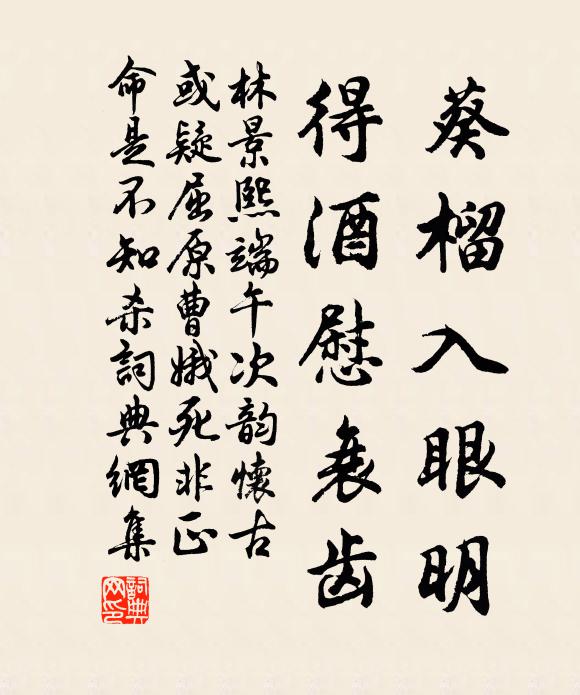 葵榴入眼明
得酒慰衰齿
林景熙端午次韵懷古
或疑屈原曹娥死非正
命是不知杀詞典網集
詞典网印